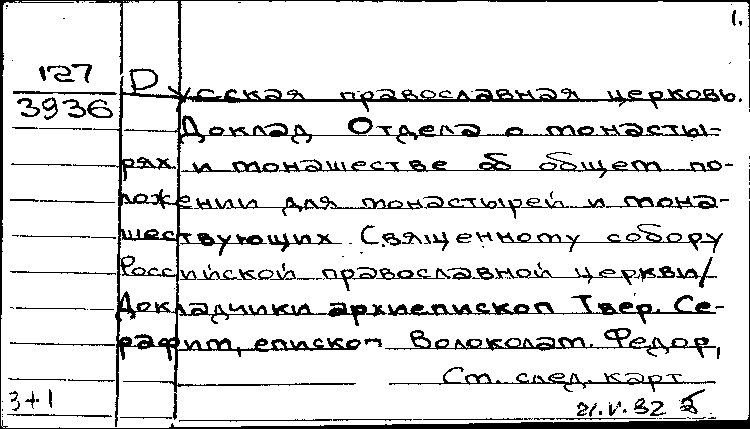 1.
127
3936
Русская православная церковь.
Доклад Отдела о монасты-
рях и монашестве об общем по-
ложении для монастырей и мона-
шествующих Священному собору
Российской православной церкви/
Докладчики архиепископ Твер. Се-
рафим, епископ Волоколам. Федор,
См. след. карт
3+1
21.V.82